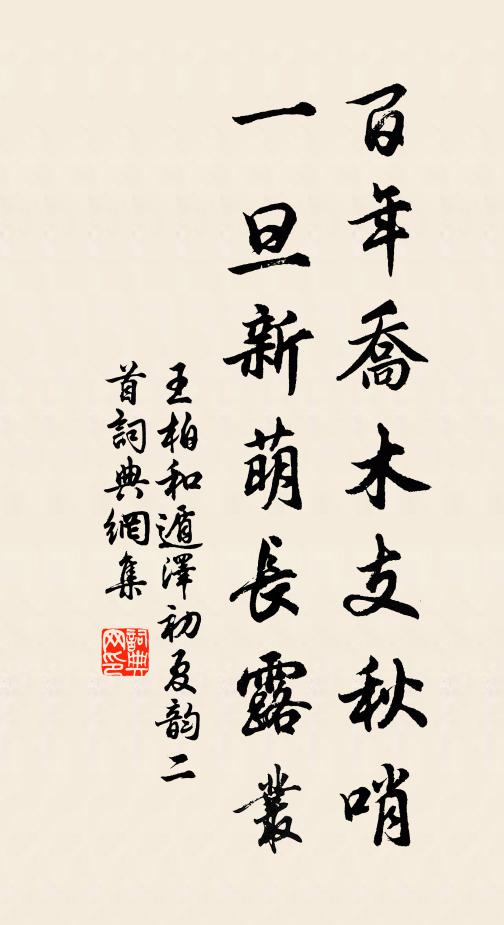 百年喬木支秋哨
一旦新萌長露叢
王柏和遁澤初夏韵二
首詞典網集
詞典网印